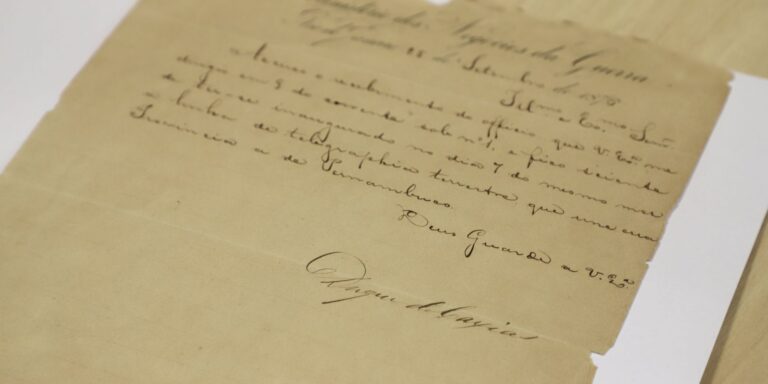 Ministerio dos Negocios da Guerra
Rio de Janeiro 28 de Setembro de 1875
Illmo e Exmo Senr.
Accuso o recebimento do officio que V. Exa. me
dirigio em 9 do corrente sob nº 1, e fico sciente
de ter-se inaugurado no dia 7 do mesmo mez
a linha de telegraphia terrestre que une essa
Provincia a de Pernambuco.
Deus Guarde a V. Exa.
Duque de Caxias